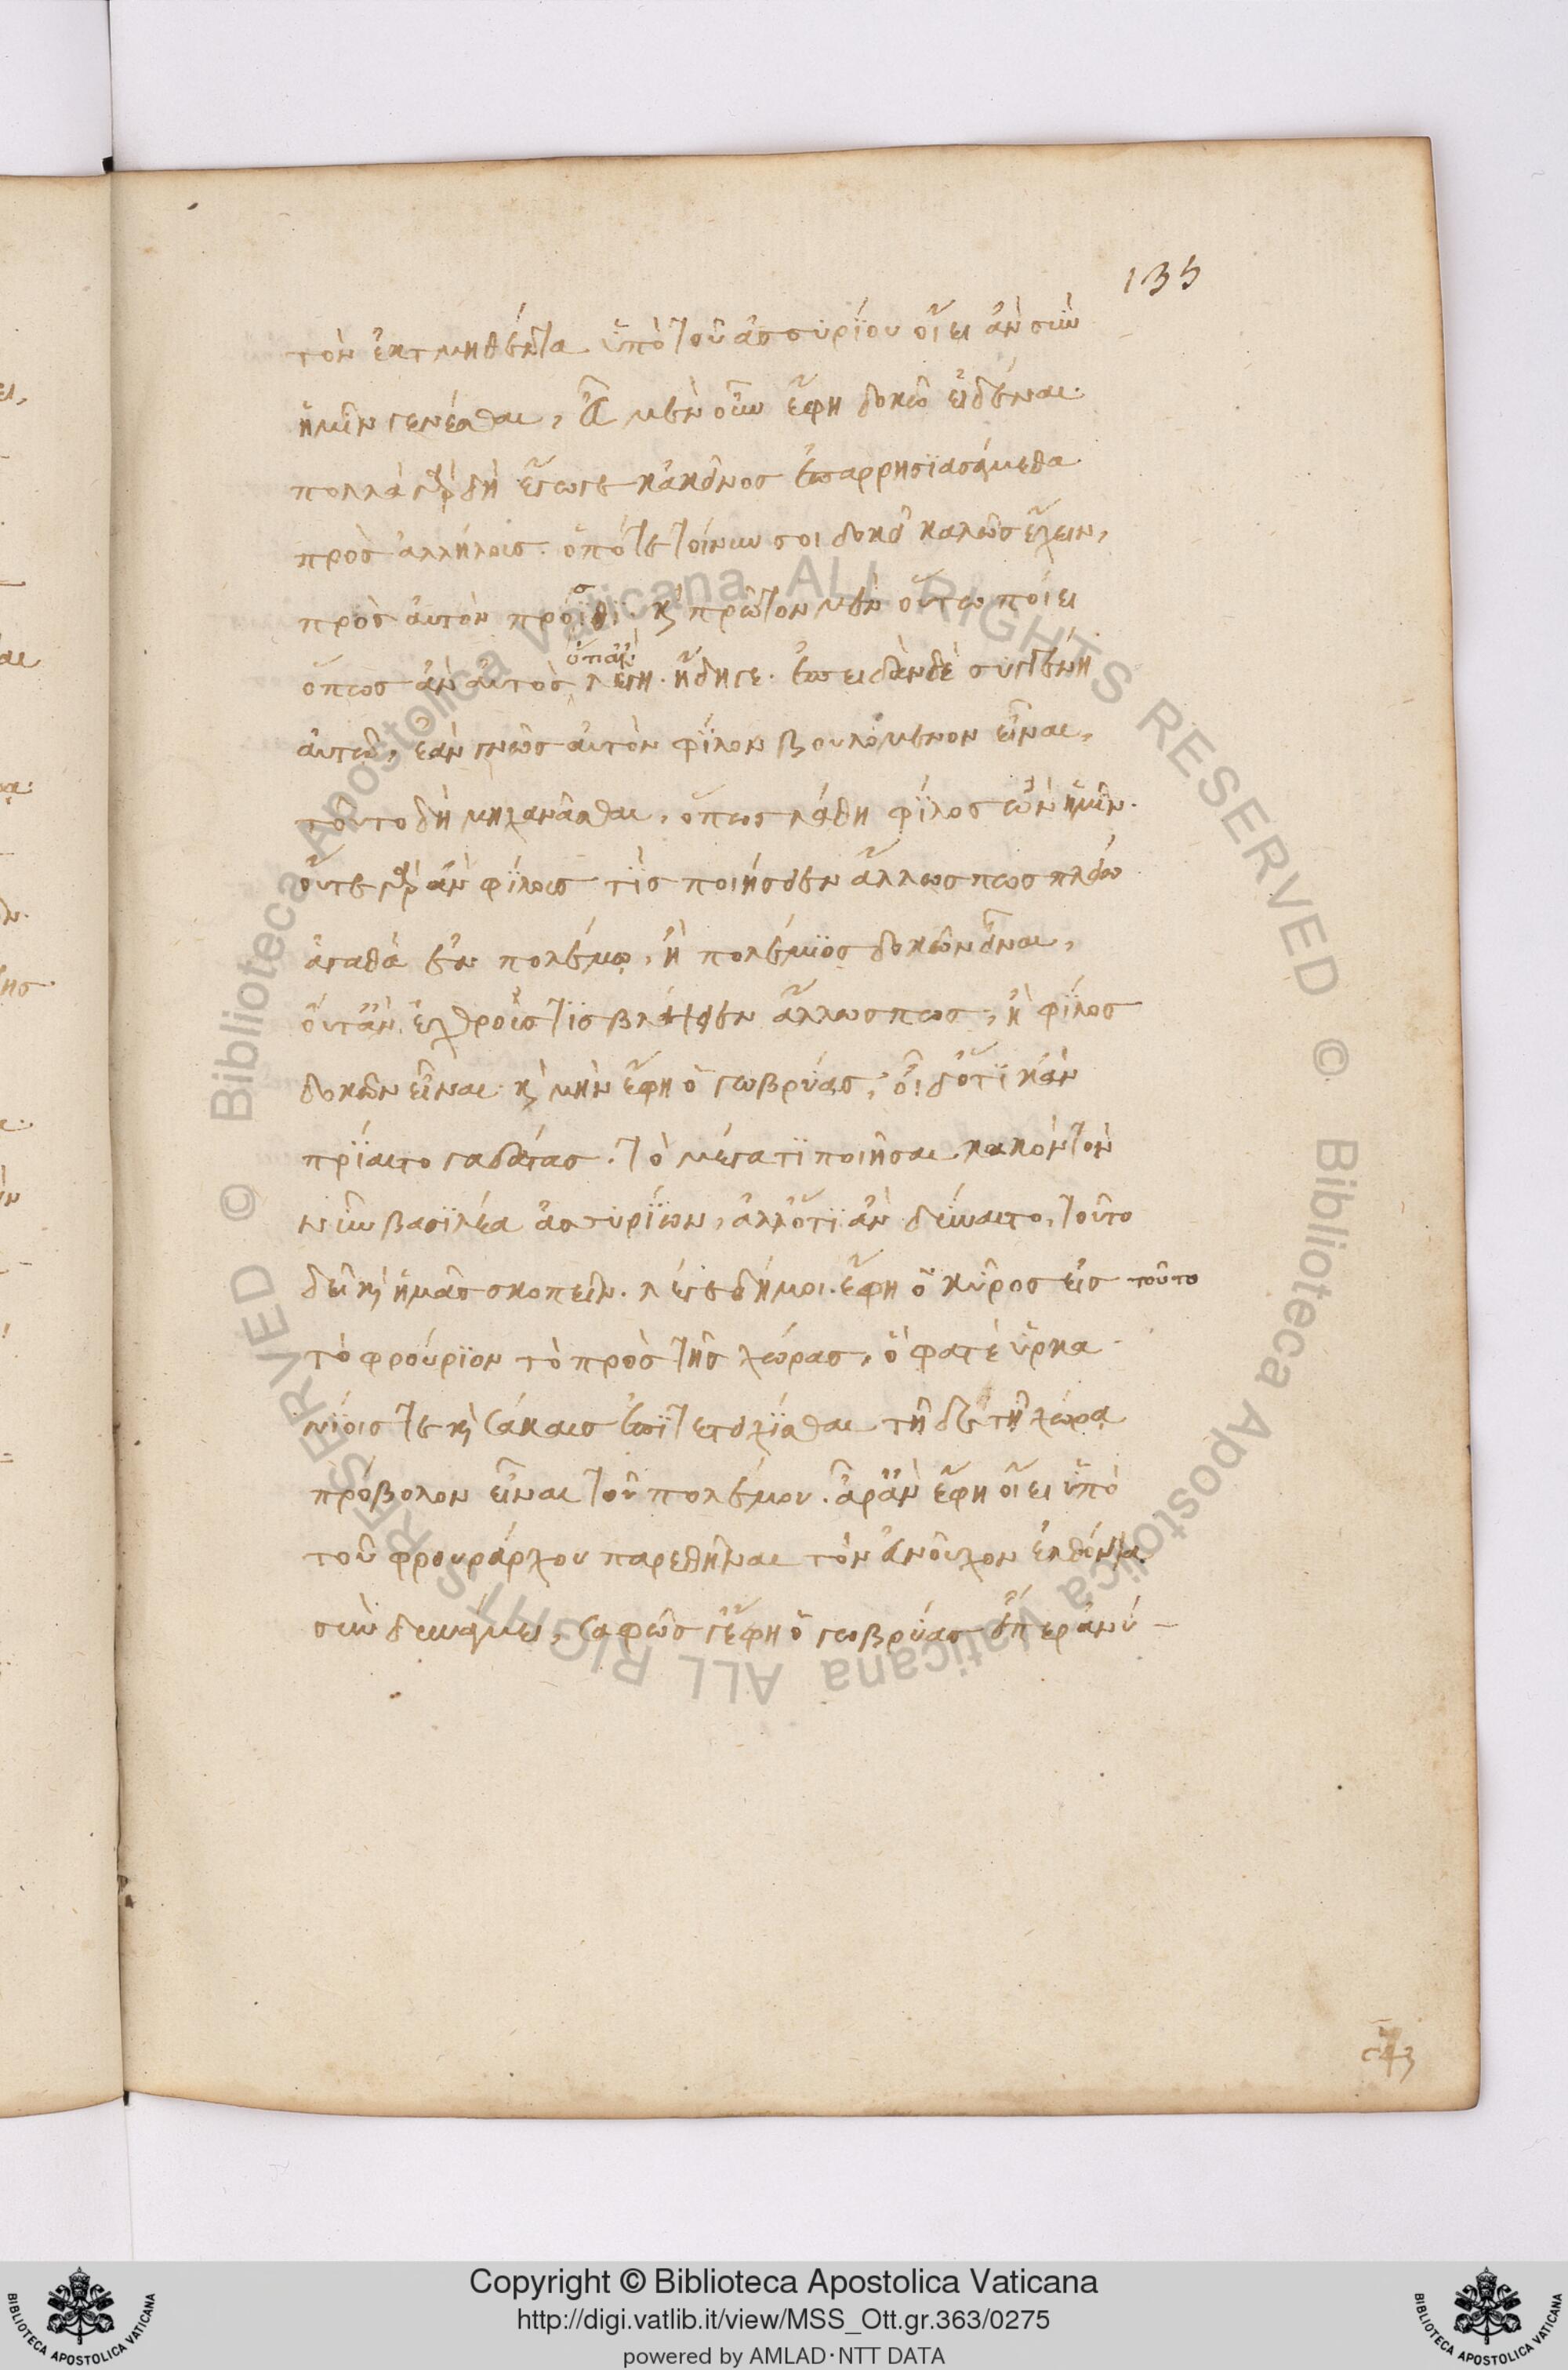 135
τὸν ἐκτμηθέντα ὑπὸ τοῦ ἀσσυρίου οἴει ἂν σὺν
ἡμῖν γενέσθαι, ἃ μὲν οὖν ἔφη δοκῶ εἰδέναι·
πολλὰ γὰρ δὴ ἔγωγε κἀκεῖνος ἐπαρρησιασάμεθα
πρὸς ἀλλήλους· ὁπότε τοίνυν σοι δοκεῖ καλῶς ἔχειν,
πρὸς αὐτὸν πρόϊθι· κ πρῶτον μὲν οὕτω ποίει
ὅπως ἂν αὐτὸς λέγῃ· ἤδησε· ἐπειδὰν δὲ συγγένῃ
αὐτῷ, ἐὰν γνῷς αὐτὸν φίλον βουλόμενον εἶναι,
τοῦτο δὴ μηχανᾶσθαι, ὅπως λάθῃ φίλος ὢν ἡμῖν·
οὔτε γὰρ ἂν φίλους τὶς ποιήσειεν ἄλλως πως πλείω
ἀγαθὰ ἐν πολέμῳ, ἢ πολέμιος δοκῶν εἶναι,
οὔτ' ἂν ἐχθροὺς τὶς βλάψειεν ἄλλως πως, ἢ φίλος
δοκῶν εἶναι· κ μὴν ἔφη ὁ γωβρύας, οἶδ' ὅτι κἂν
πρίαιτο γαδάτας· τὸ μέγα τι ποιῆσαι κακὸν τὸν
νῦν βασιλέα ἀσσυρίων, ἀλλ' ὅτι ἂν δύναιτο, τοῦτο
δεῖ κ ἡμᾶς σκοπεῖν· λέγε δή μοι· ἔφη ὁ κῦρος εἰς τοῦτο
τὸ φρούριον τὸ πρὸς τῆς χώρας, ὅ φατε ὑρκα
νίοις τε κ σάκαις ἐπιτετειχίσθαι τῇδε τῇ χώρᾳ
πρόβολον εἶναι τοῦ πολέμου· ἆρ' ἂν ἔφη οἴει ὑπὸ
τοῦ φρουράρχου παρεθῆναι τὸν εὐνοῦχον ἐλθόντα
σὺν δυνάμει, σαφῶς γ' ἔφη ὁ γωβρύας εἴπερ ἀνύ-
Copyright © Biblioteca Apostolica Vaticana
http://digi.vatlib.it/view/MSS_Ott.gr.363/0275
powered by AMLAD·NTT DATA